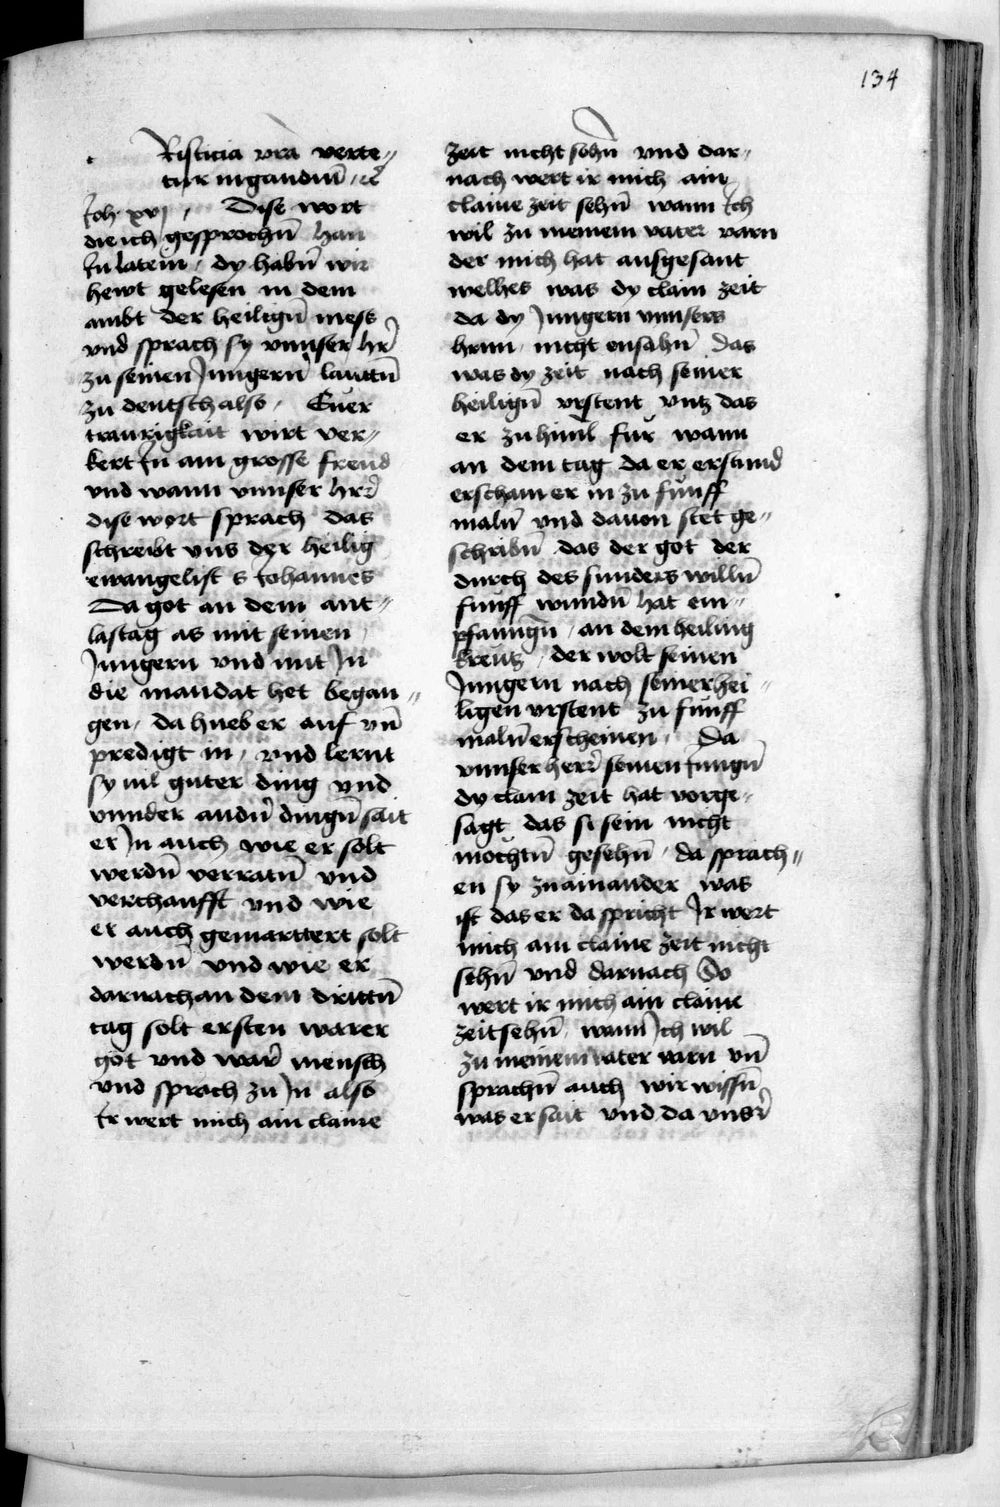 134
Risticia vr̄a verte//
tur in gaudiū / ꝛc̄
Joh xvj / Dise wort
die ich gesprochn̄ han
Jn latein / dy habn̄ wir
hewt gelesen in dem
ambt der heilign̄ mess
vnd sprach sy vnnser hr̄
zu seinen Jungern̄ lauttn̄
zu deutsch also / Euer
traurigkait wirt ver//
kert Jn ain grosse freud
vnd wann vnnser hrr̄
dise wort sprach das
schreibt vns der heilig
ewangelist s Johannes
Da got an dem ant//
lastag as mit seinen
Jungern vnd mit Jn
die mandat het began//
gen / da hueb er auf vn̄
predigt in / vnd lernt
sy vil guter ding vnd
vnnder andn̄ dingn̄ sait
er Jn auch wie er solt
werdn̄ verratn̄ vnd
verchaufft vnd wie
er auch gemarttert solt
werdn̄ vnd wie er
darnach an dem drittn̄
tag solt ersten warer
got vnd war̄ mensch
vnd sprach zu Jn also
Jr wert mich ain claine
zeit nicht sehn̄ vnd dar//
nach wert ir mich ain
claine zeit sehn̄ wann Jch
wil zu meinem vater varn
der mich hat ausgesant
welhes was dy clain zeit
da dy Jungern vnnsers
hrnn / nicht ensahn̄ Das
was dy zeit nach seiner
heilign̄ vrstent vntz das
er zu himl̄ fůr wann
an dem tag da er erstund
erschain er in zu fünff
maln̄ vnd dauon stet ge//
schribn̄ das der got der
durch des sunders willn̄
fünff wundn̄ hat em//
pfanngn̄ / an dem heiling
kreutz / der wolt seinen
Jungern nach seiner hei//
ligen vrstent zu fünff
maln̄ erscheinen / Da
vnnser herr̄ seinen Jungn̄
dy clain zeit hat vorge//
sagt das si sein nicht
möchtn̄ gesehn̄ / da sprach//
en sy zu ainander was
ist das er da spricht Jr wert
mich ain claine zeit nicht
sehn̄ vnd darnach So
wert ir mich ain claine
zeit sehn̄ / wann Jch wil
zu meinem vater varn vn̄
sprachn̄ auch wir wissn̄
was er sait vnd da vnsr̄